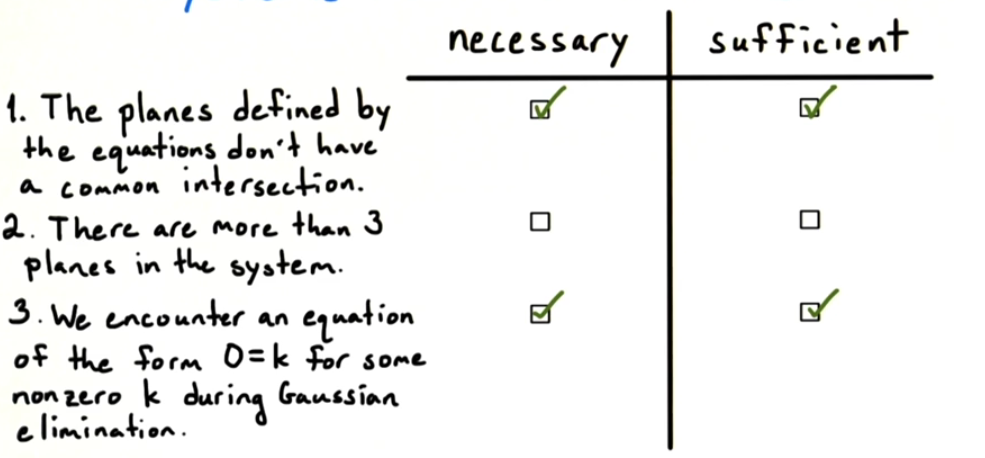 necessary
sufficient
1. The planes defined by
the equations don't have
a common intersection.
2. There are more than 3
planes in the system.
3. We encounter an equation
of the form 0=k for some
nonzero k during Gaussian
elimination.